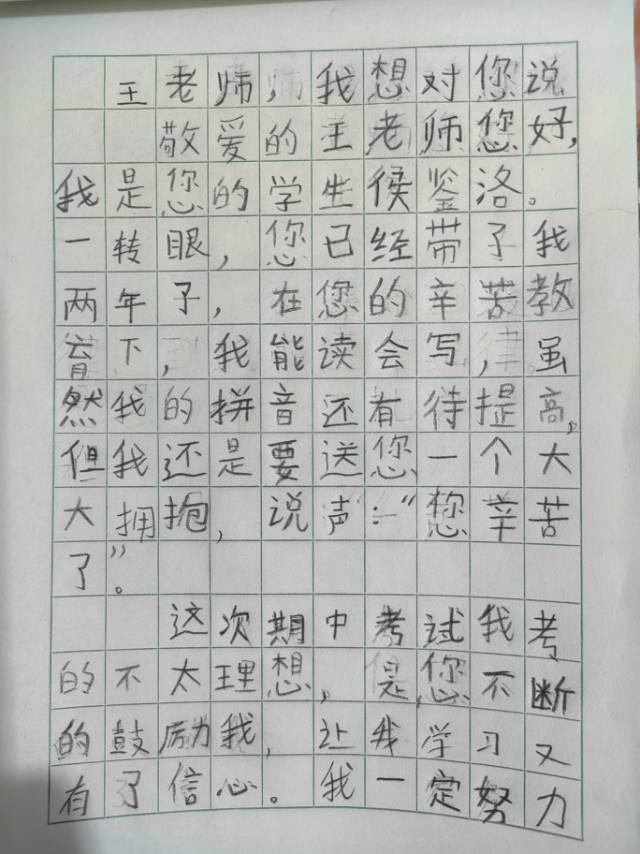 王老师，我想对您说
敬爱的王老师您好，
我是您的学生侯鉴洛。
一转眼，您已经带了我
两年了，在您的辛苦教
育下，我能读会写，虽
然我的拼音还有待提高，
但我还是要送您一个大
大拥抱，说声：“您辛苦
了”。
这次期中考试我考
的不太理想，但是，您不断
的鼓励我，让我学习又
有了信心。我一定努力